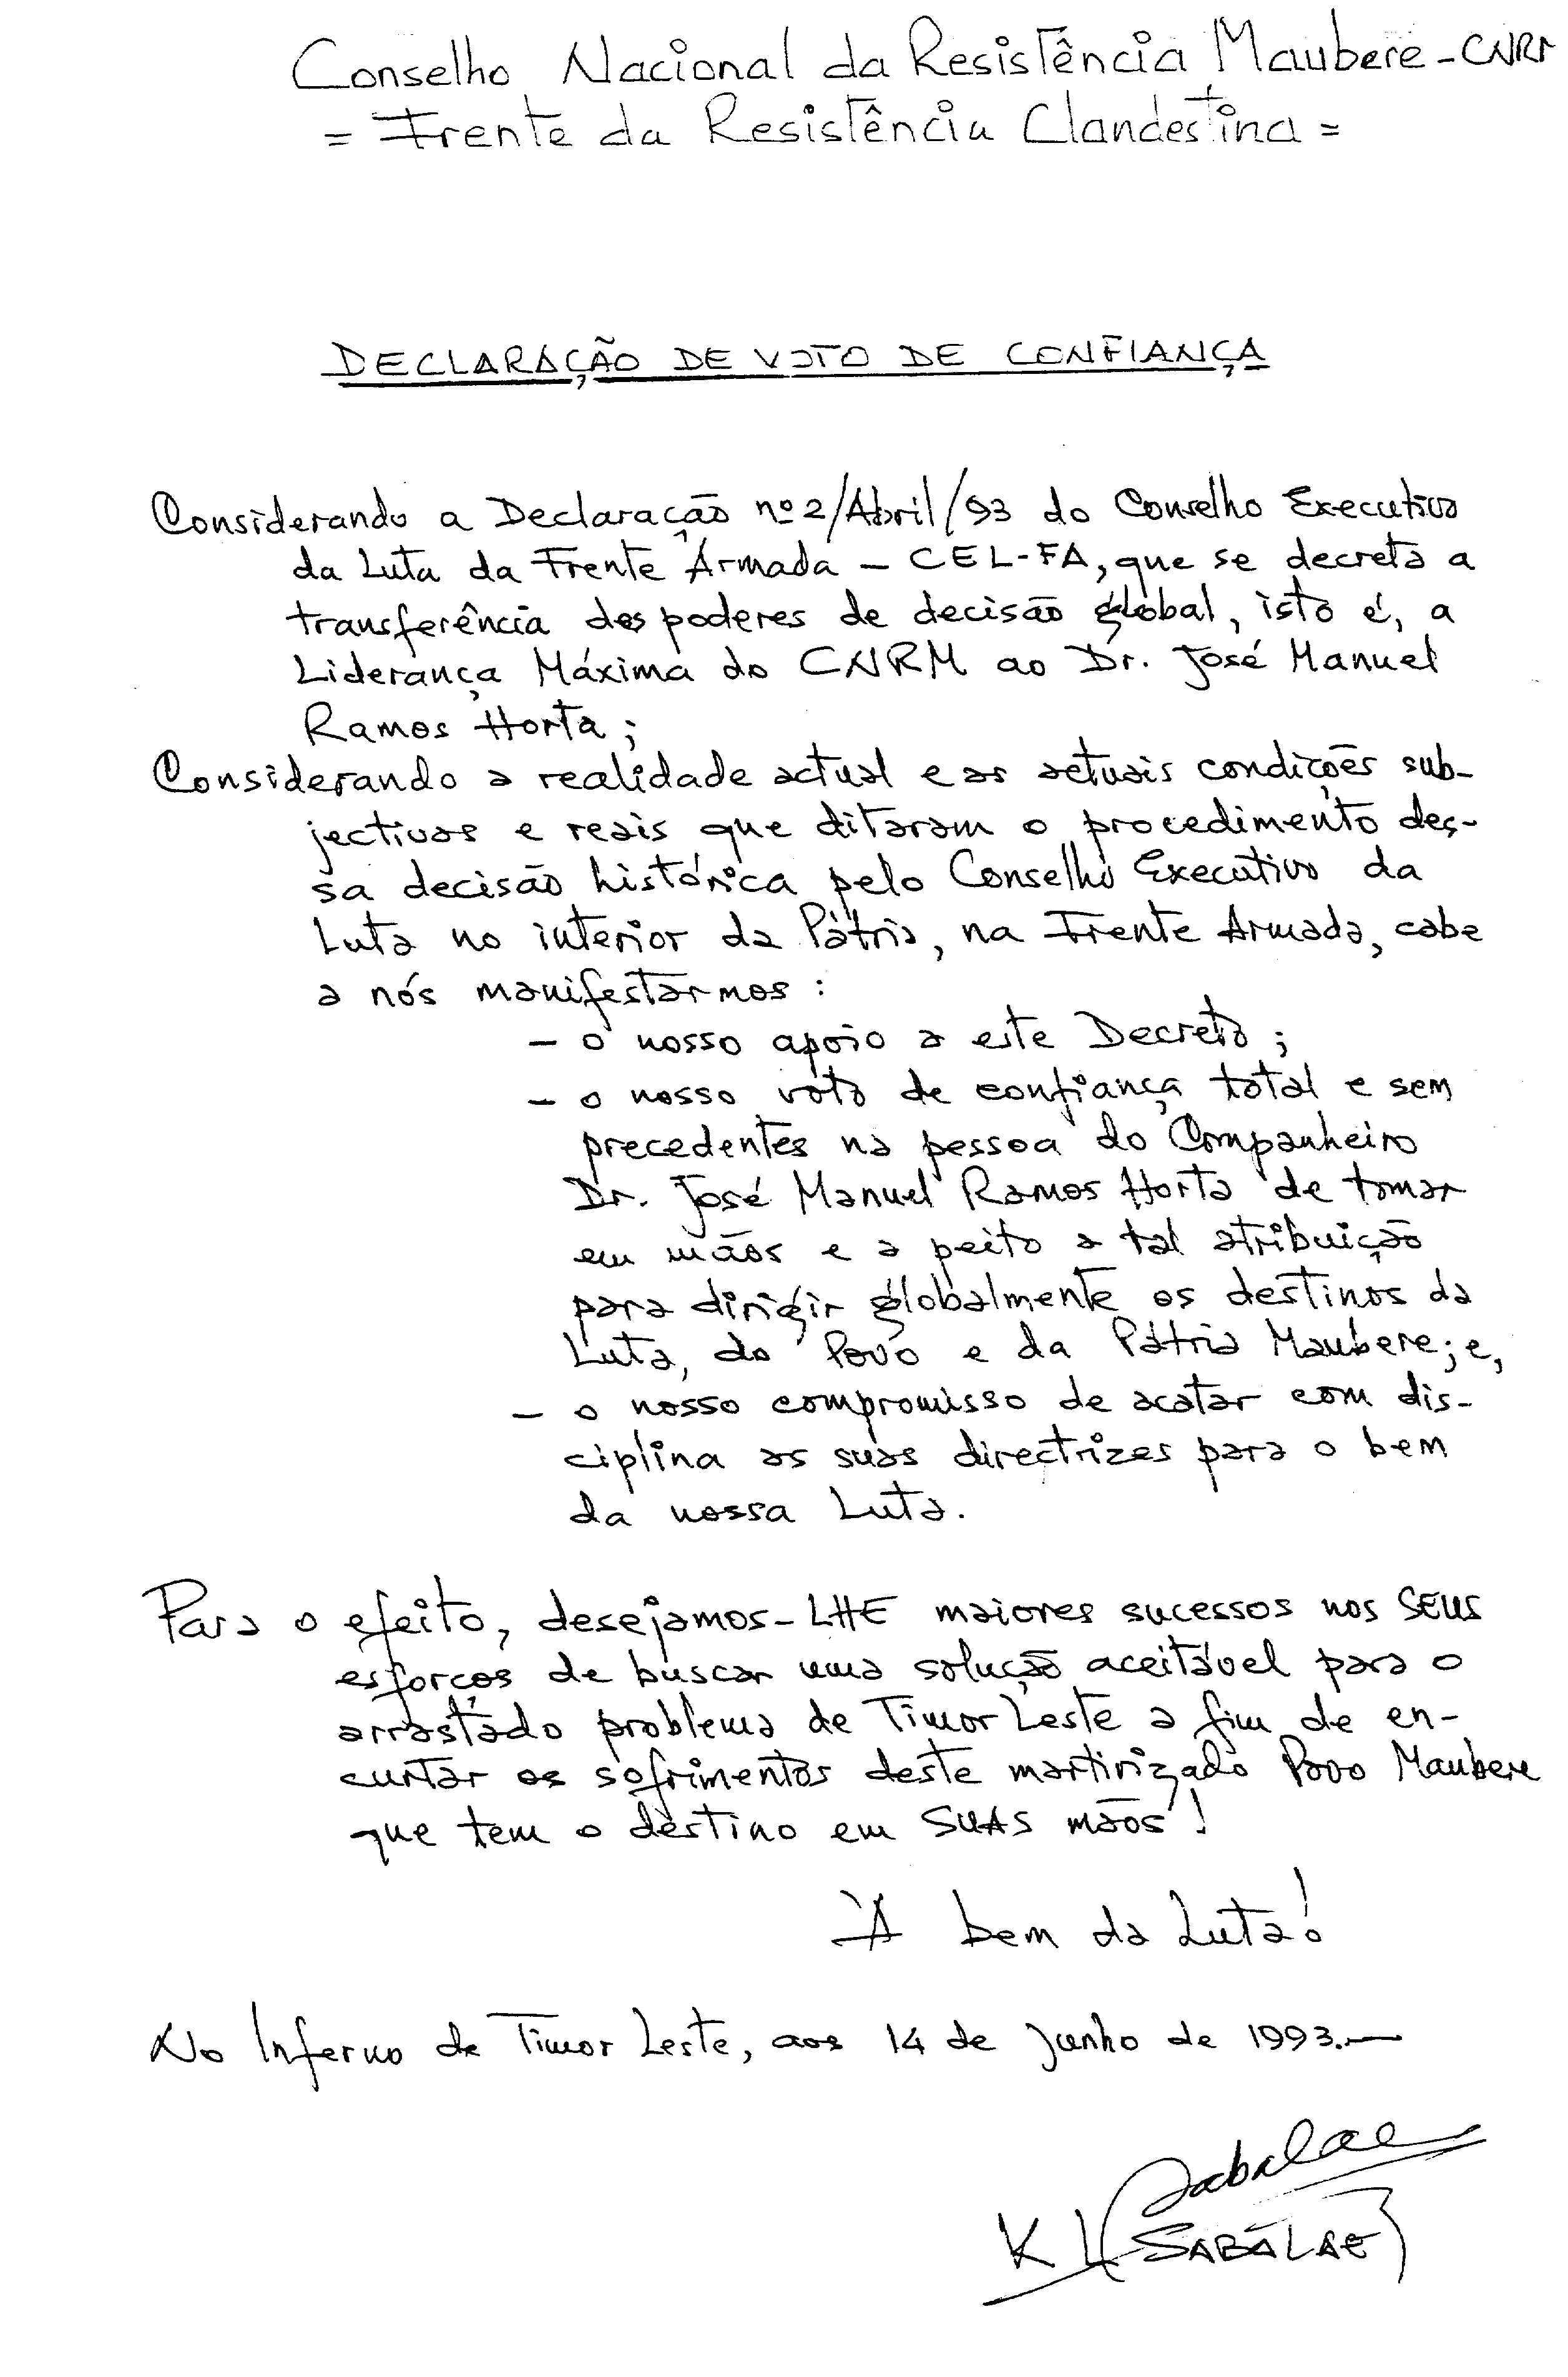 Conselho Nacional da Resistência Maubere - CNRM
= Frente da Resistência Clandestina =
DECLARAÇÃO DE VOTO DE CONFIANÇA
Considerando a Declaração nº 2/Abril/93 do Conselho Executivo
da Luta da Frente Armada - CEL-FA, que se decreta a
transferência dos poderes de decisão global, isto é, a
Liderança Máxima do CNRM ao Dr. José Manuel
Ramos Horta;
Considerando a realidade actual e as actuais condições sub-
jectivas e reais que ditaram o procedimento des-
sa decisão histórica pelo Conselho Executivo da
Luta no interior da Pátria, na Frente Armada, cabe
a nós manifestarmos:
- o nosso apoio a este Decreto;
- o nosso voto de confiança total e sem
precedentes na pessoa do Companheiro
Dr. José Manuel Ramos Horta de tomar
em mãos e a peito a tal atribuição
para dirigir globalmente os destinos da
Luta, do Povo e da Pátria Maubere; e,
- o nosso compromisso de acatar com dis-
ciplina as suas directrizes para o bem
da nossa Luta.
Para o efeito, desejamos-LHE maiores sucessos nos SEUS
esforços de buscar uma solução aceitável para o
arrastado problema de Timor Leste a fim de en-
curtar os sofrimentos deste martirizado Povo Maubere
que tem o destino em SUAS mãos!
À bem da Luta!
No Inferno de Timor Leste, aos 14 de Junho de 1993.-
Sabalae
K L (SABALAE)